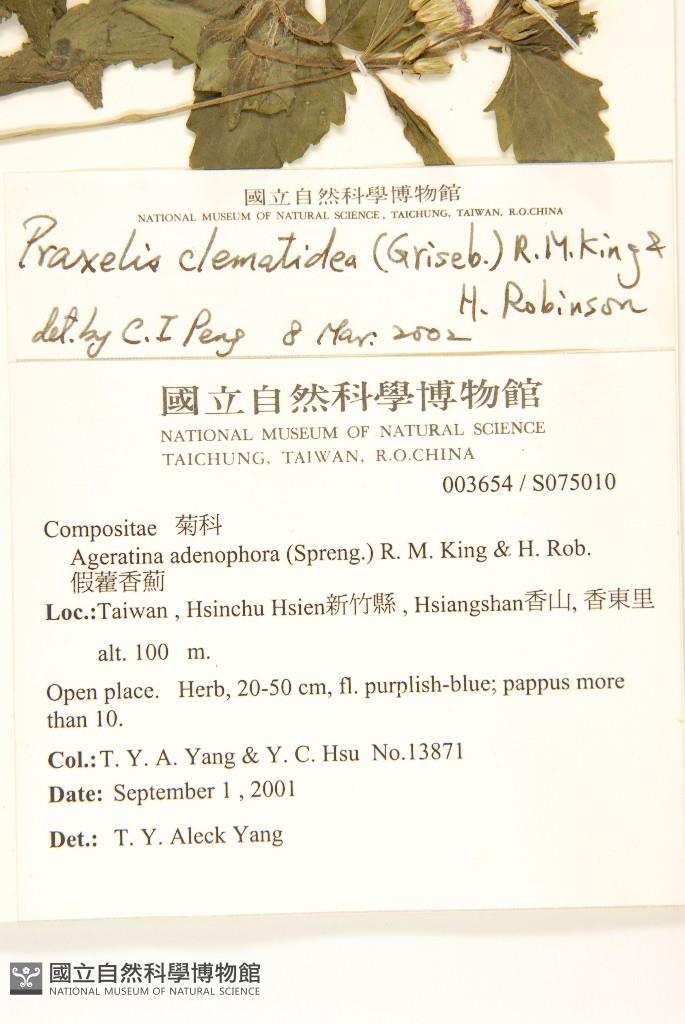 國立自然科學博物館
NATIONAL MUSEUM OF NATURAL SCIENCE, TAICHUNG, TAIWAN, R.O.CHINA
Praxelis clematidea (Griseb.) R.M.King &
H. Robinson
det. by C. I Peng 8 Mar. 2002
國立自然科學博物館
NATIONAL MUSEUM OF NATURAL SCIENCE
TAICHUNG, TAIWAN, R.O.CHINA
003654 / S075010
Compositae 菊科
Ageratina adenophora (Spreng.) R. M. King & H. Rob.
假藿香薊
Loc.:Taiwan , Hsinchu Hsien新竹縣 , Hsiangshan香山, 香東里
alt. 100 m.
Open place. Herb, 20-50 cm, fl. purplish-blue; pappus more
than 10.
Col.: T. Y. A. Yang & Y. C. Hsu No.13871
Date: September 1 , 2001
Det.: T. Y. Aleck Yang
國立自然科學博物館
NATIONAL MUSEUM OF NATURAL SCIENCE